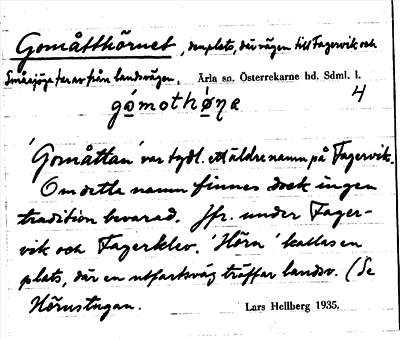 Gomåtthörnet, den plats, där vägen till Fagervik och
Småsjöge tar av från landsvägen. Ärla sn. Österrekarne hd. Sdml. l.
gómothǿṇe 4
'Gomåttan' var tydl. ett äldre namn på Fagervik.
Om detta namn finnes dock ingen
tradition bevarad. Jfr. under Fager-
vik och Fagerklev. 'Hörn' kallas en
plats, där en utfartsväg träffar landsv. (Se
Hörnstugan.
Lars Hellberg 1935.